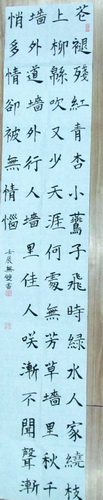 花褪殘紅青杏小鷰子飛時綠水人家繞枝
上柳緜吹又少天涯何處無芳草墙里秋千
墙外道墙外行人墙里佳人咲漸不聞聲漸
悄多情卻被無情惱
壬辰無雙書